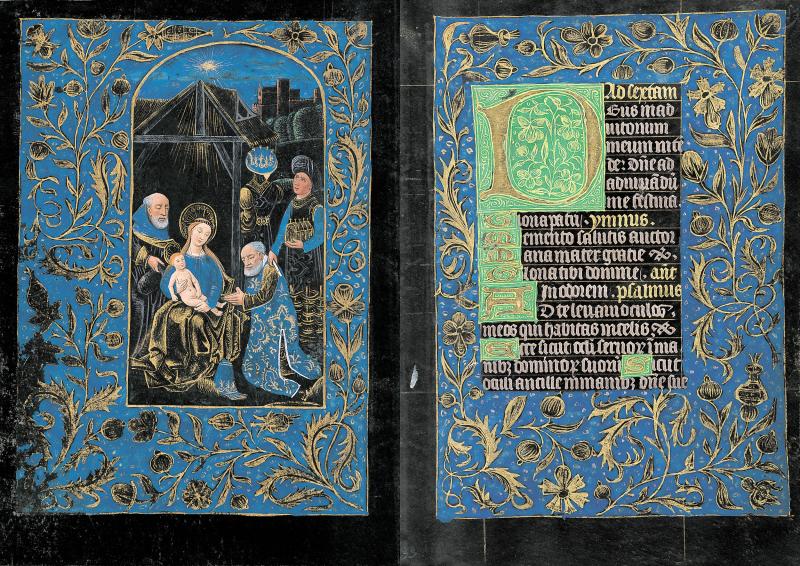 Ad sextam
Deus in ad
iutorium
meum inte
de: Dñe ad
adiuuãdũ
me festina
Gloria patri. ymnus.
Memento salutis auctor
Maria mater gratie
Gloria tibi domine. ant
In odorem. psalmus
AD te leuaui oculos
meos qui habitas in celis
Ecce sicut oculi seruoꝝ ĩ ma
nibꝫ dominoꝝ suoꝝ Sicut
oculi ancille in manibꝫ dñe sue